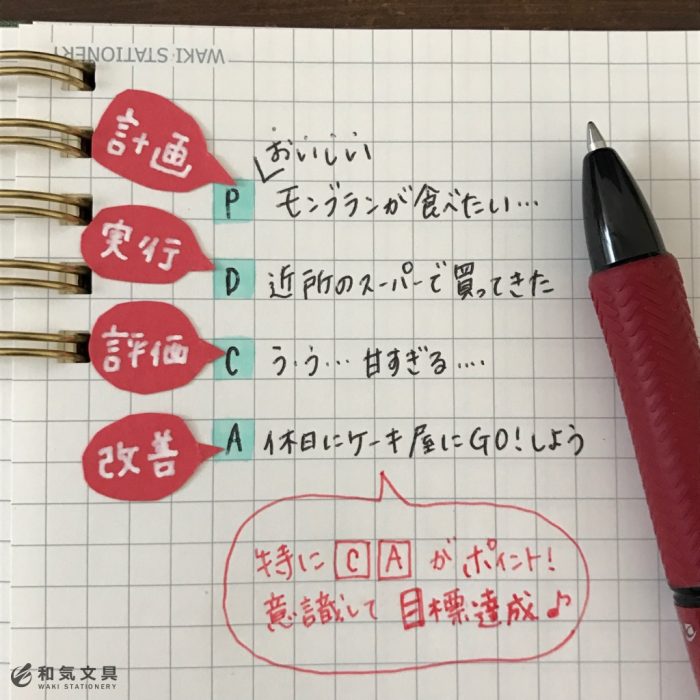 WAKI STATIONERY
計画
おいしい
P モンブランが食べたい…
実行
D 近所のスーパーで買ってきた
評価
C う・う… 甘すぎる….
改善
A 休日にケーキ屋にGO!しよう
特に C A がポイント!
意識して 目標達成♪
和気文具
WAKI STATIONERY